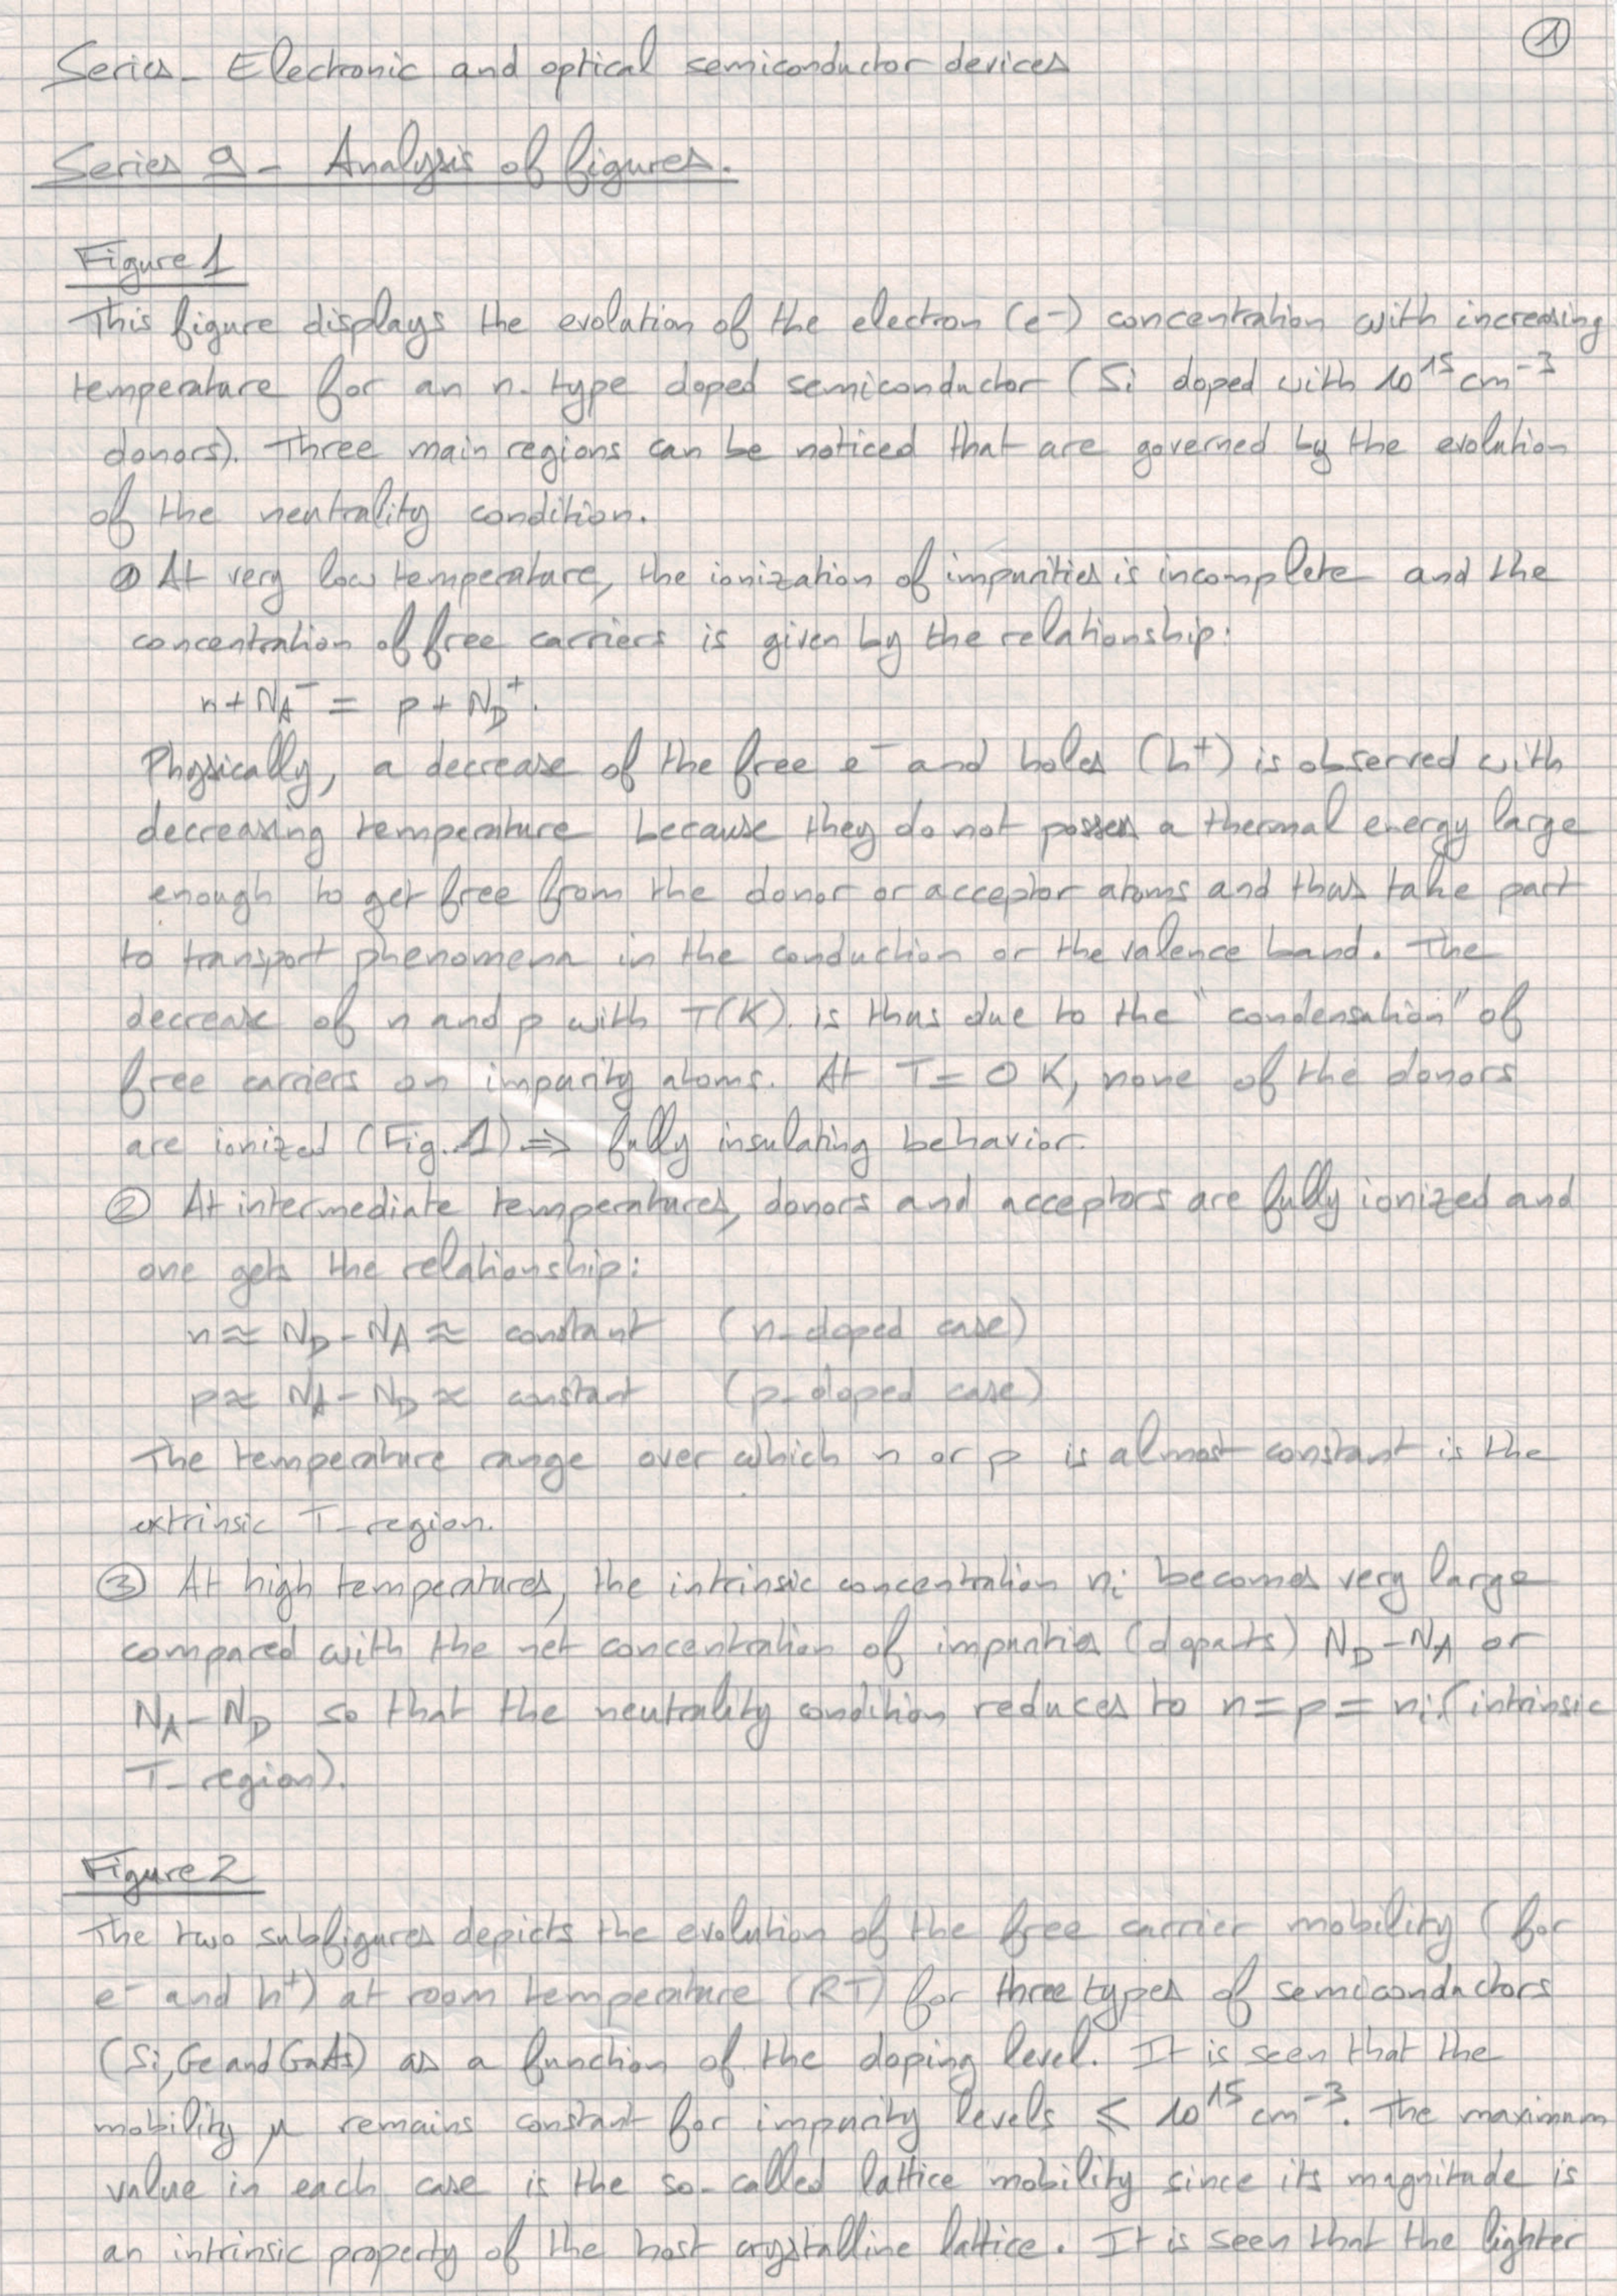 ①
Series - Electronic and optical semiconductor devices
Series 9 - Analysis of figures.
Figure 1
This figure displays the evolution of the electron (e-) concentration with increasing
temperature for an n-type doped semiconductor (Si doped with 10¹⁵ cm⁻³
donors). Three main regions can be noticed that are governed by the evolution
of the neutrality condition.
① At very low temperature, the ionization of impurities is incomplete and the
concentration of free carriers is given by the relationship:
n + N_A⁻ = p + N_D⁺.
Physically, a decrease of the free e⁻ and holes (h⁺) is observed with
decreasing temperature because they do not possess a thermal energy large
enough to get free from the donor or acceptor atoms and thus take part
to transport phenomena in the conduction or the valence band. The
decrease of n and p with T(K) is thus due to the "condensation" of
free carriers on impurity atoms. At T = 0 K, none of the donors
are ionized (Fig. 1) ⇒ fully insulating behavior.
② At intermediate temperatures, donors and acceptors are fully ionized and
one gets the relationship:
n ≈ N_D - N_A ≈ constant (n-doped case)
p ≈ N_A - N_D ≈ constant (p-doped case)
The temperature range over which n or p is almost constant is the
extrinsic T-region.
③ At high temperatures, the intrinsic concentration nᵢ becomes very large
compared with the net concentration of impurities (dopants) N_D - N_A or
N_A - N_D so that the neutrality condition reduces to n = p = nᵢ (intrinsic
T-region).
Figure 2
The two subfigures depicts the evolution of the free carrier mobility (for
e⁻ and h⁺) at room temperature (RT) for three types of semiconductors
(Si, Ge and GaAs) as a function of the doping level. It is seen that the
mobility μ remains constant for impurity levels ⩽ 10¹⁵ cm⁻³. The maximum
value in each case is the so-called lattice mobility since its magnitude is
an intrinsic property of the host crystalline lattice. It is seen that the lighter